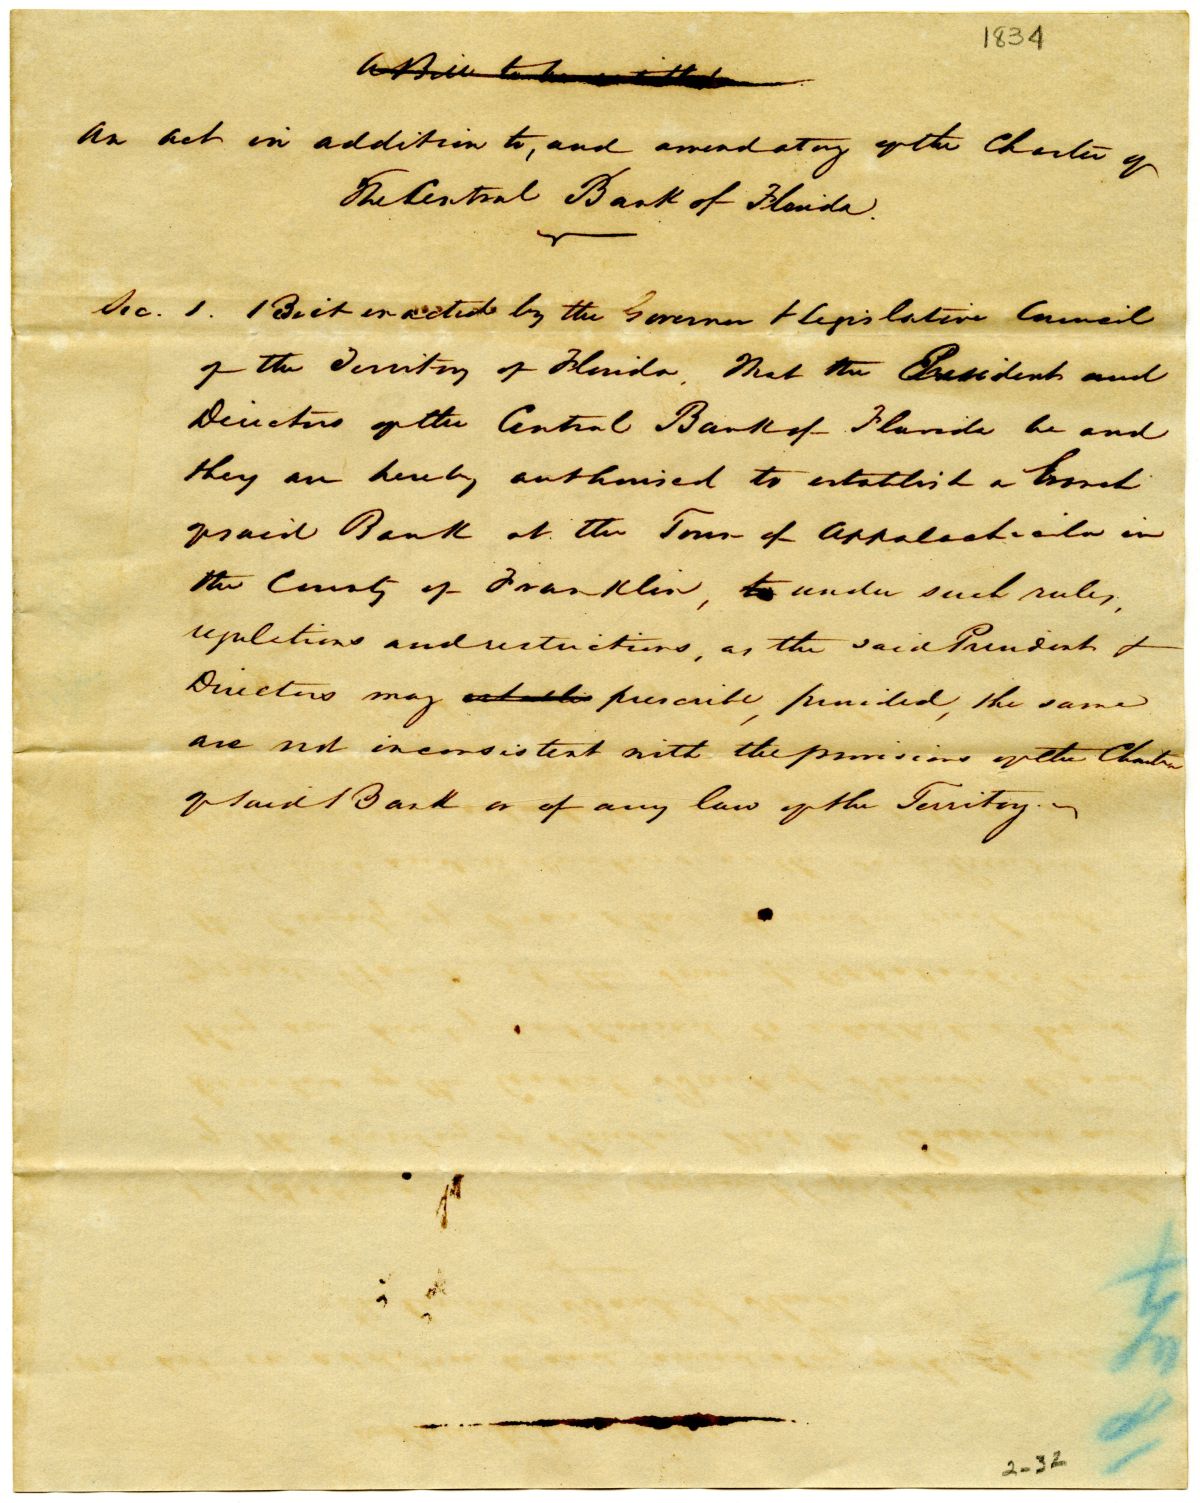 1834
A Bill to be entitled
An act in addition to, and amendatory of the Charter of
The Central Bank of Florida.
Sec. 1. Be it enacted by the Governor & Legislative Council
of the Territory of Florida. That the President and
Directors of the Central Bank of Florida be and
they are hereby authorised to establish a branch
of said Bank at the Town of Appalachicola in
the County of Franklin, to under such rules,
regulations and restrictions, as the said President &
Directors may establis prescribe, provided, the same
are not inconsistent with the provisions of the Charter
of said Bank or of any law of the Territory.
1834
2-32